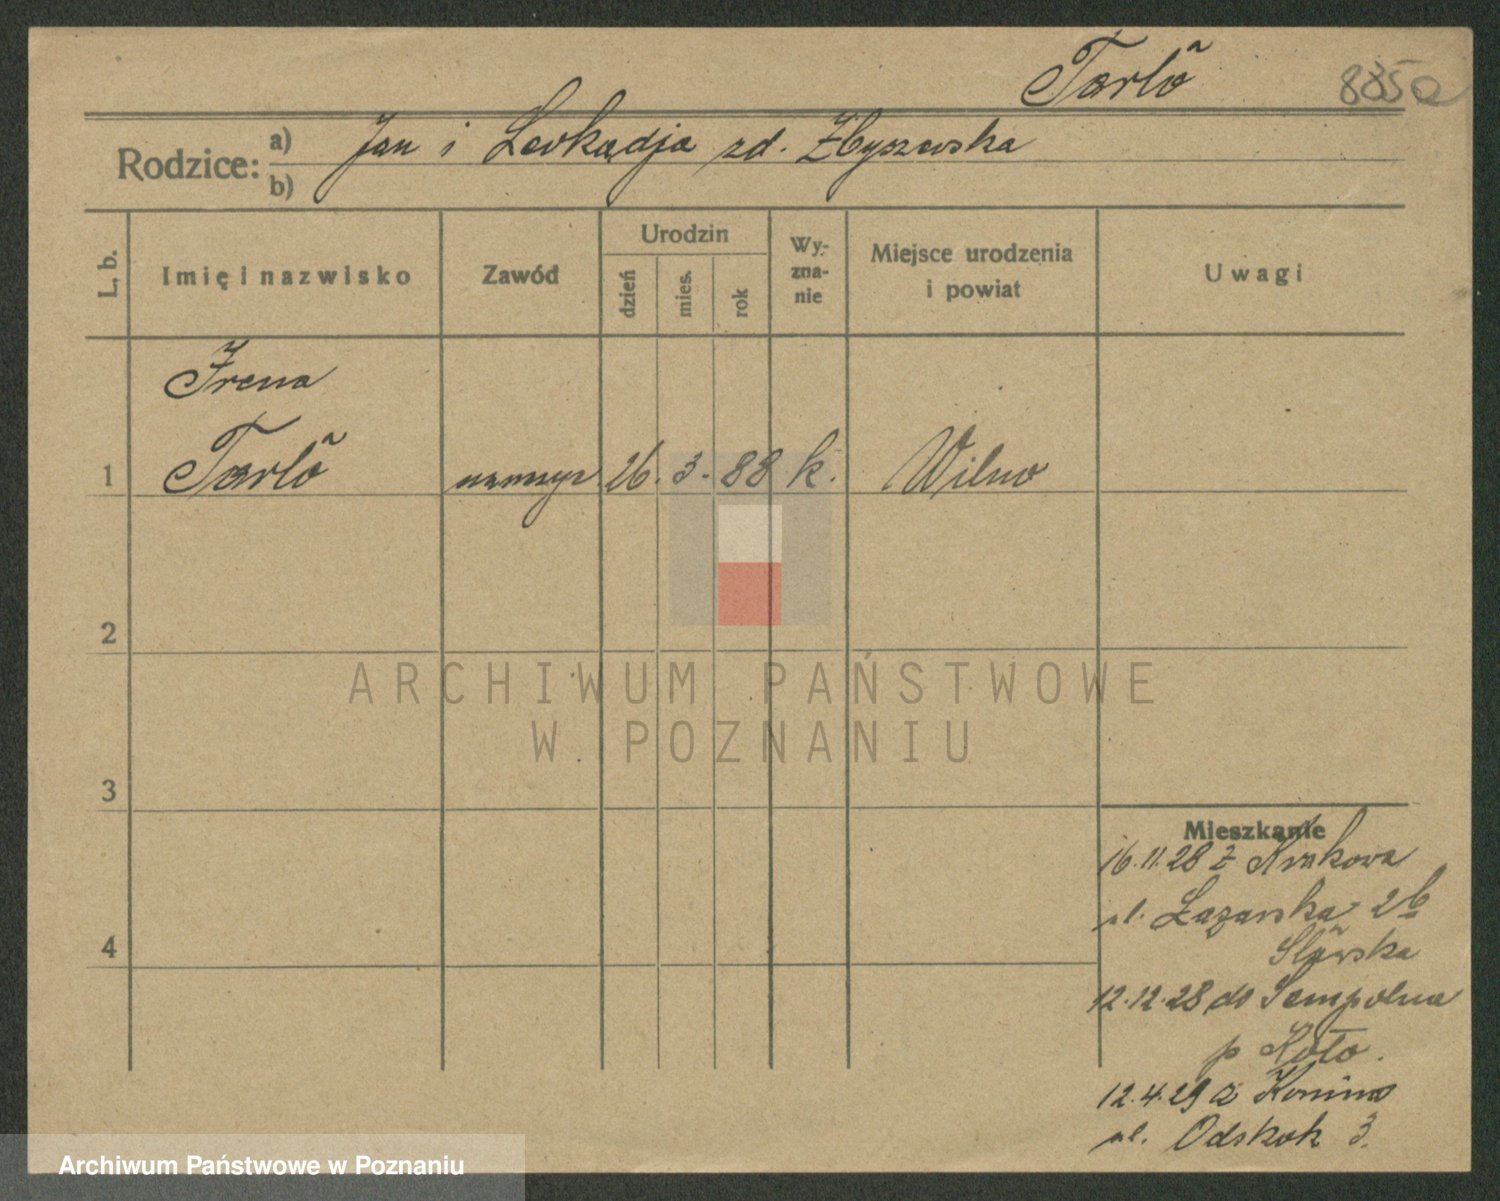 Tarło
885a
Rodzice: a) Jan i Leokadja zd. Zbyszewska
b)
L. b. Imię i nazwisko Zawód Urodzin dzień mies. rok Wyzna-nie Miejsce urodzenia i powiat Uwagi
Irena
1 Tarło nauczyc 26. 3. 88 k. Wilno
2
ARCHIWUM PAŃSTWOWE
W POZNANIU
3
Mieszkanie
16.11.28 z Krakowa
ul. Łazarska 2b
4
12.12.28 do Sompolna
p Koło.
12.4.29 z Konina
ul. Odskok 3.
Archiwum Państwowe w Poznaniu